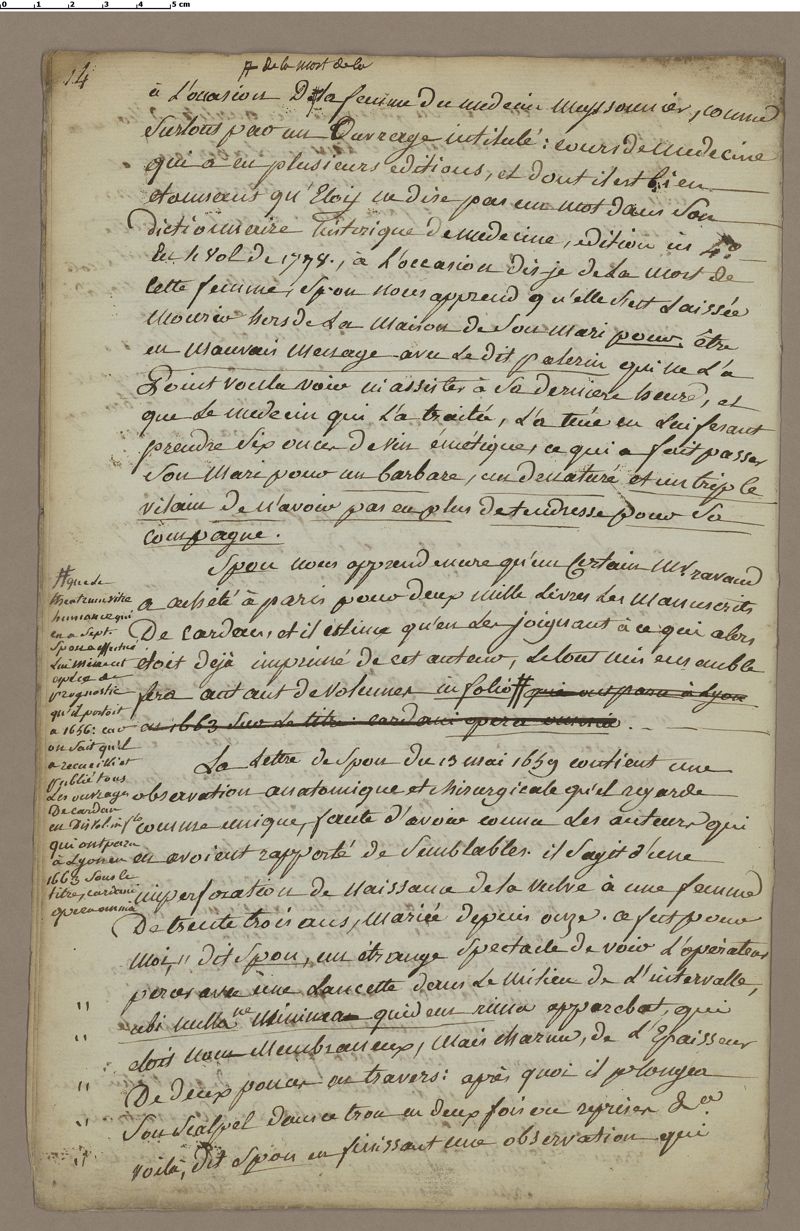 0 1 2 3 4 5 cm
14
# de la mort de la
à L'occasion De # la femme du medecin meyssonnier, connu
surtout par un Ouvrage intitulé: cours de medecine
qui a eu plusieurs editions, et dont il est bien
etonnant qu'Eloy ne dise pas un mot dans son
dictionnaire historique de medecine, edition in 4.º
En 4 vol de 1778., à L'occasion dis je de La mort de
cette femme, Spon nous apprend qu'elle s'est Laissée
mourir hors de La maison de son mari pour être
en mauvais menage avec Le dit paterin qui ne L'a
Point voulu voir ni assister à Sa derniere heure, et
que Le medecin qui L'a traitée, L'a tuée en Lui fesant
prendre six onces de vin émetique, ce qui a fait passer
son mari pour un barbare, un denaturé et un triple
vilain de n'avoir pas eu plus de tendresse pour sa
compagne.
Spon nous apprend encore qu'un certain Mr ravaud
a acheté à paris pour deux mille Livres Les manuscrits
De cardan, et il estime qu'en Les joignant à ce qui alors
etoit dejà imprimé de cet auteur, Le tout mis ensemble
fera autant de volumes in folio # qui ont paru à Lyon
en 1663 sous Le titre: cardani opera omnia.
# que de
theatrum vitæ
humanæ qui
en a sept.
Spon a effectué
Lui même cet
espèce de
prognostic
qu'il portoit
à 1656: car
on sait qu'il
a recueilli et
publié tous
Les ouvrages
De cardan
en Dix vol. in fº
qui ont paru
à Lyon en
1663 Sous Le
titre, cardani
opera omnia
La Lettre de Spon du 13 mai 1659 contient une
observation anatomique et chirurgicale qu'il regarde
comme unique, faute d'avoir connu Les auteurs qui
en avoient rapporté de semblables. il s'agit d'une
imperforation de naissance de la vulve à une femme
De trente trois ans, mariée depuis onze. ce fut pour
moi, " dit Spon, un étrange spectacle de voir L'operateur
percer avec une Lancette dans Le milieu de L'intervalle,
" ubi nulla ne minima quidem rima apparebat, qui
etoit non membraneux, mais charnu, de L'Epaisseur
" De deux pouces en travers: après quoi il plongea
" Son scalpel dans ce trou en deux fois ou reprises &ª.
" voilà, dit Spon en finissant une observation qui